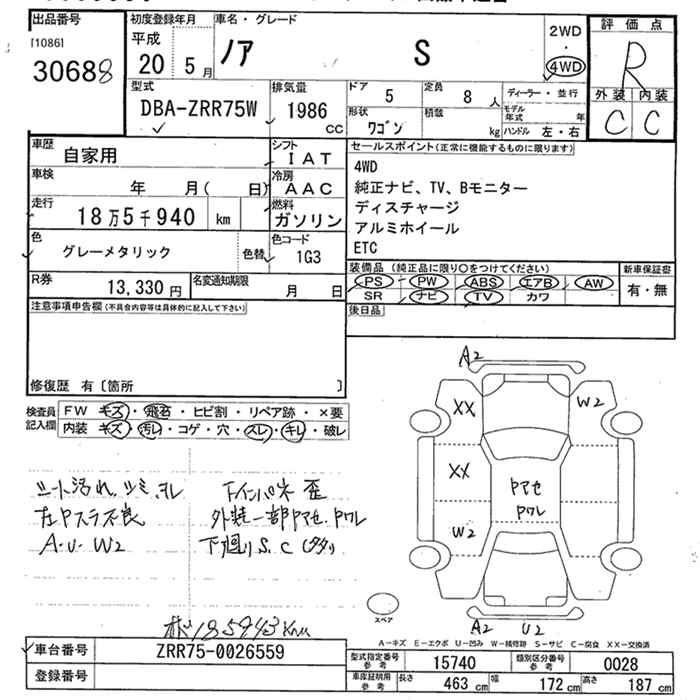 出品番号
[1086]
30688
初度登録年月
平成
20 5月
車名・グレード
ノア S
2WD
・
4WD
評価点
R
外装 内装
C C
型式
DBA-ZRR75W
排気量
1986
cc
ドア 5
定員 8人
ディーラー・並行
形状 ワゴン
積載 kg
モデル年式 年
ハンドル 左・右
車歴 自家用
シフト
IAT
セールスポイント(正常に機能するものに限ります)
4WD
純正ナビ、TV、Bモニター
ディスチャージ
アルミホイール
ETC
車検 年 月( 日)
冷房
AAC
走行 18万5千940 km
燃料
ガソリン
色 グレーメタリック
色替
色コード
1G3
R券 13,330円
名変通知期限 月 日
装備品 (純正品に限り○をつけてください)
PS PW ABS エアB AW
SR ナビ TV カワ
新車保証書
有・無
注意事項申告欄(不具合内容等は具体的に記入して下さい)
後日品
修復歴 有〔箇所 〕
検査員
記入欄
FW キズ・飛石・ヒビ割・リペア跡・×要
内装 キズ・汚レ・コゲ・穴・スレ・キレ・破レ
A2
XX
W2
XX
W2
ヤアセ
ヤワレ
シート汚れ、シミ、スレ
A・U・W2
下インパネ 歪
外装一部ヤアセ、ヤワレ
下廻りS、C
スペア
A2 U2
A－キズ E－エクボ U－凹み W－補修跡 S－サビ C－腐食 XX－交換済
185943km
車台番号 ZRR75-0026559
登録番号
型式指定番号
参考
15740
類別区分番号
参考
0028
車庫証明用
参考
長さ 463cm 幅 172cm 高さ 187cm